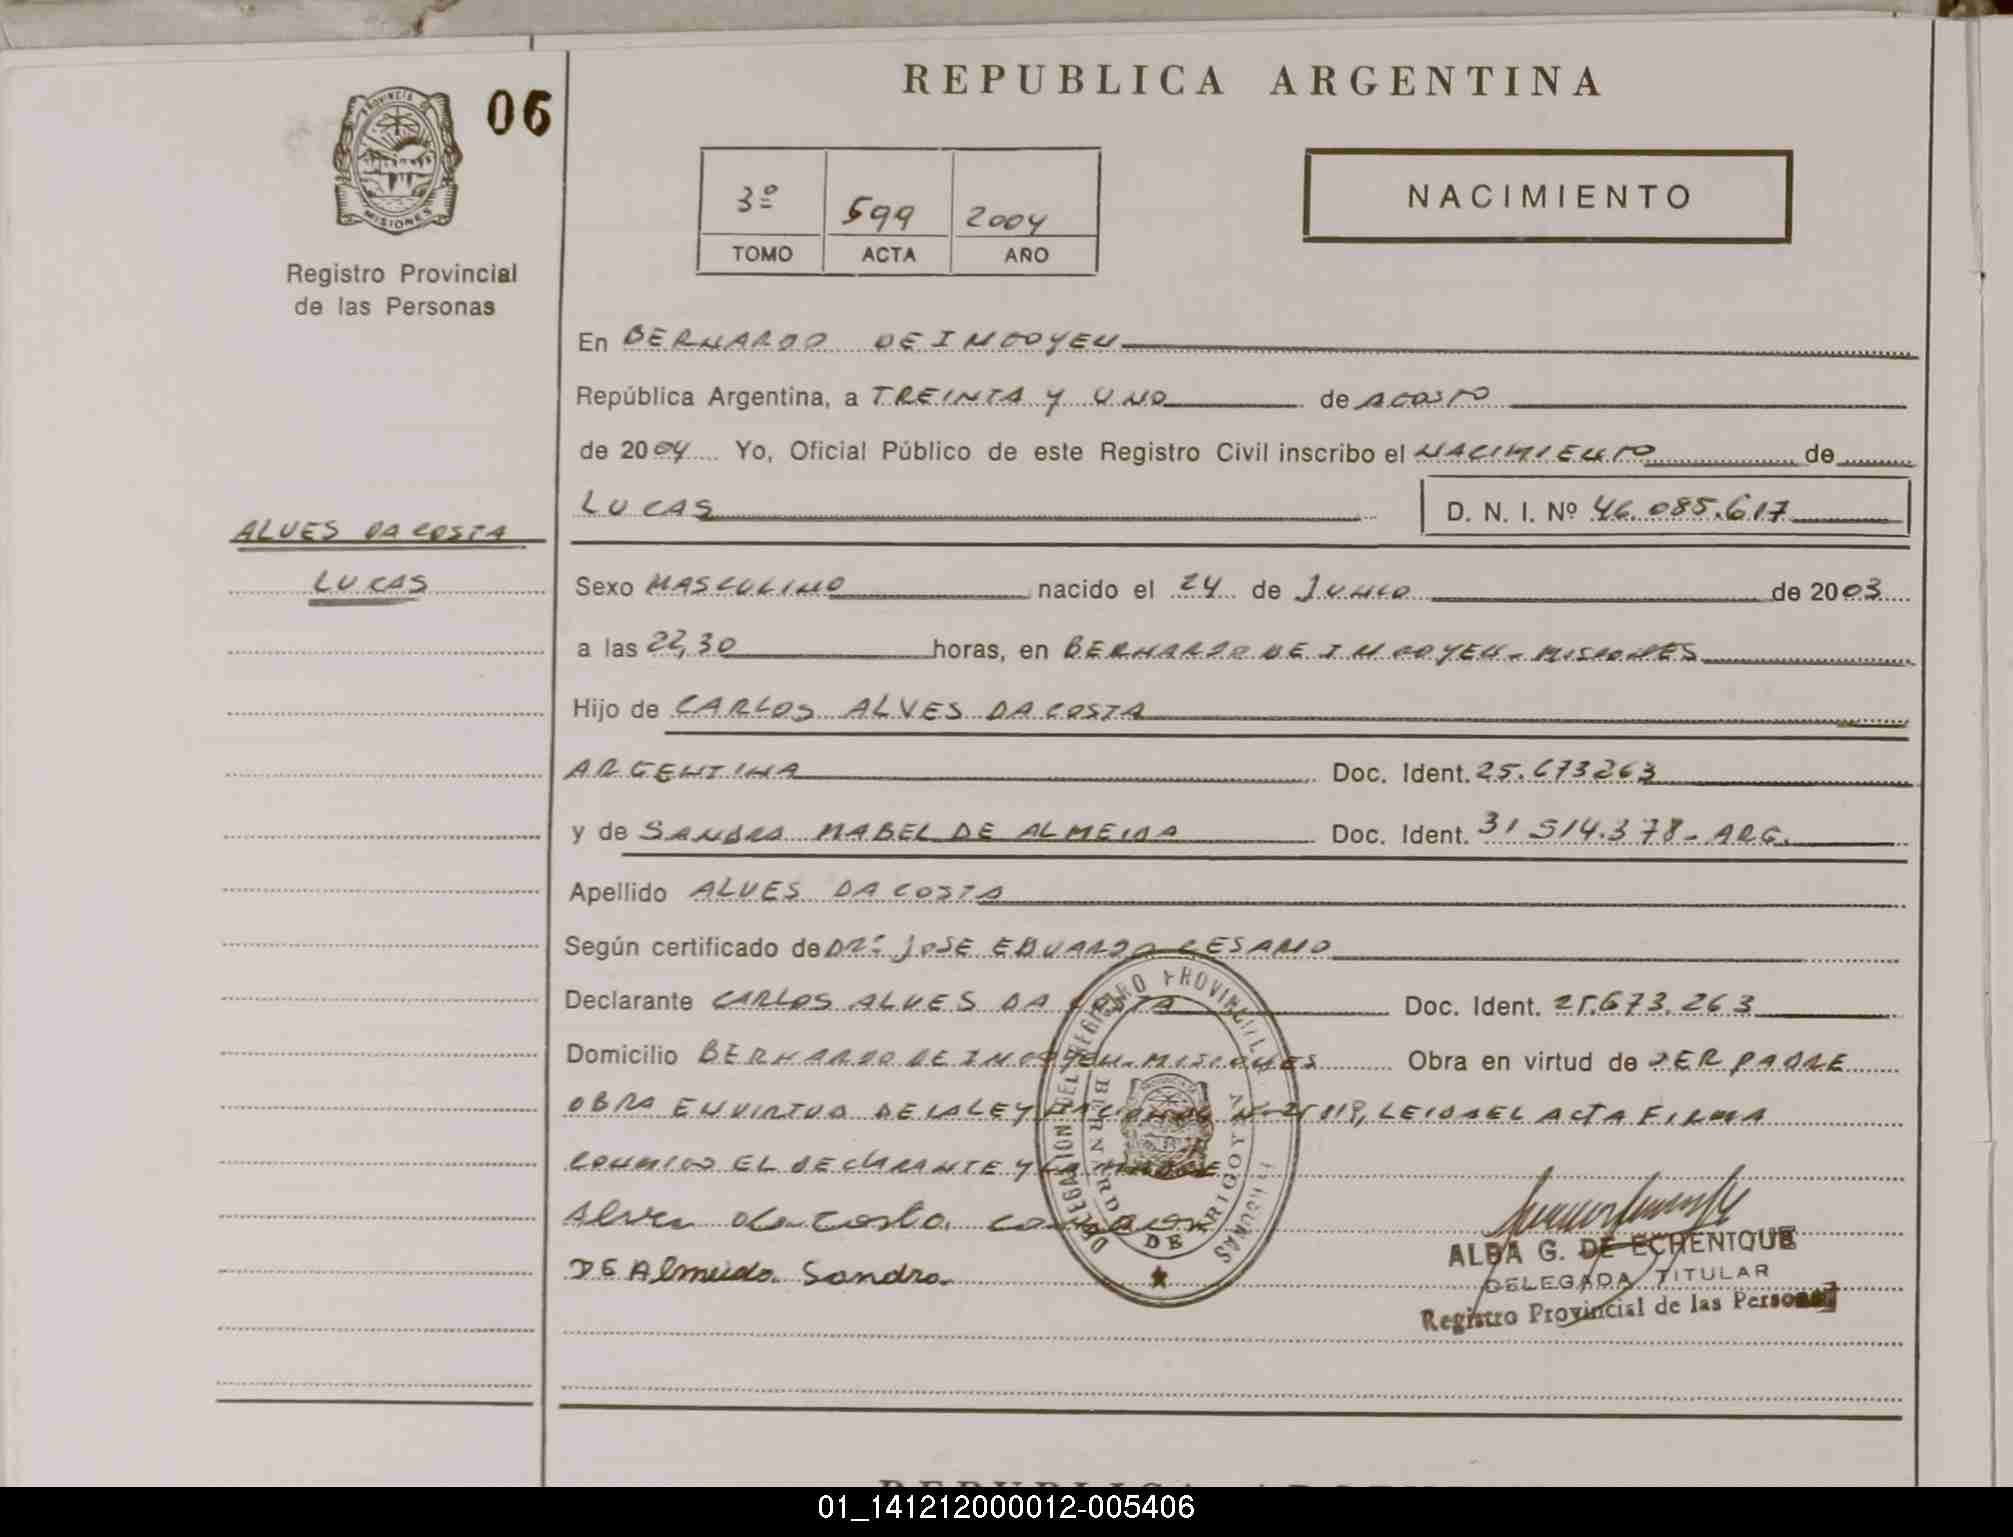 REPUBLICA ARGENTINA
PROVINCIA DE
MISIONES
06
Registro Provincial
de las Personas
3º 599 2004
TOMO ACTA AÑO
NACIMIENTO
En BERNARDO DE IRIGOYEN
República Argentina, a TREINTA Y UNO de AGOSTO
de 2004 Yo, Oficial Público de este Registro Civil inscribo el NACIMIENTO de
LUCAS D. N. I. Nº 46.085.617
ALVES DA COSTA
LUCAS
Sexo MASCULINO nacido el 24 de JUNIO de 2003
a las 22,30 horas, en BERNARDO DE IRIGOYEN - MISIONES
Hijo de CARLOS ALVES DA COSTA
ARGENTINA Doc. Ident. 25.673263
y de SANDRA MABEL DE ALMEIDA Doc. Ident. 31 514.378 - ARG.
Apellido ALVES DA COSTA
Según certificado de DR: JOSE EDUARDO CESARIO
Declarante CARLOS ALVES DA COSTA Doc. Ident. 25.673.263
Domicilio BERNARDO DE IRIGOYEN - MISIONES Obra en virtud de SER PADRE
OBRA EN VIRTUD DE LA LEY NACIONAL Nº 25819, LEIDA EL ACTA FIRMA
CONMIGO EL DECLARANTE Y LA MADRE
Alves da Costa
DE Almeida Sandra
DELEGACION DEL REGISTRO PROVINCIAL PERSONAS
BERNARDO DE IRIGOYEN
ALBA G. DE ECHENIQUE
DELEGADA TITULAR
Registro Provincial de las Personas
01_141212000012-005406